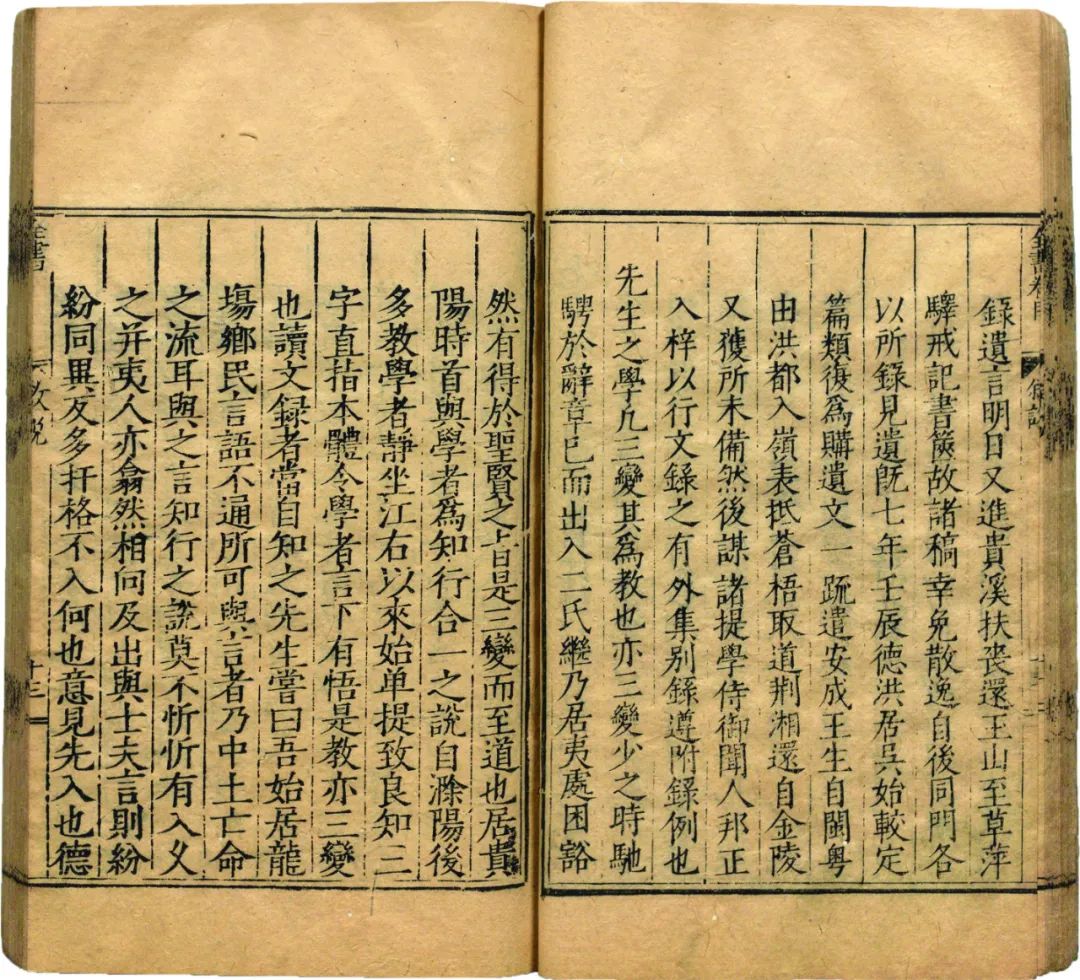 錄遺言明日又進貴溪扶喪還玉山至草萍
驛戒記書篋故諸稿幸免散逸自後同門各
以所錄見遺既七年壬辰德洪居吳始較定
篇類復爲購遺文一疏遣安成王生自閩粵
由洪都入嶺表抵蒼梧取道荆湘還自金陵
又獲所未備然後謀諸提學侍御聞人邦正
入梓以行文錄之有外集别錄遵附錄例也
先生之學凡三變其爲教也亦三變少之時馳
騁於辭章已而出入二氏繼乃居夷處困豁
然有得於聖賢之旨是三變而至道也居貴
陽時首與學者爲知行合一之說自滁陽後
多教學者靜坐江右以來始单提致良知三
字直指本體令學者言下有悟是教亦三變
也讀文録者當自知之先生嘗曰吾始居龍
塲鄉民言語不通所可與言者乃中土亡命
之流耳與之言知行之說莫不忻忻有入乆
之并夷人亦翕然相向及出與士夫言則紛
紛同異反多扞格不入何也意見先入也德
全書
十三